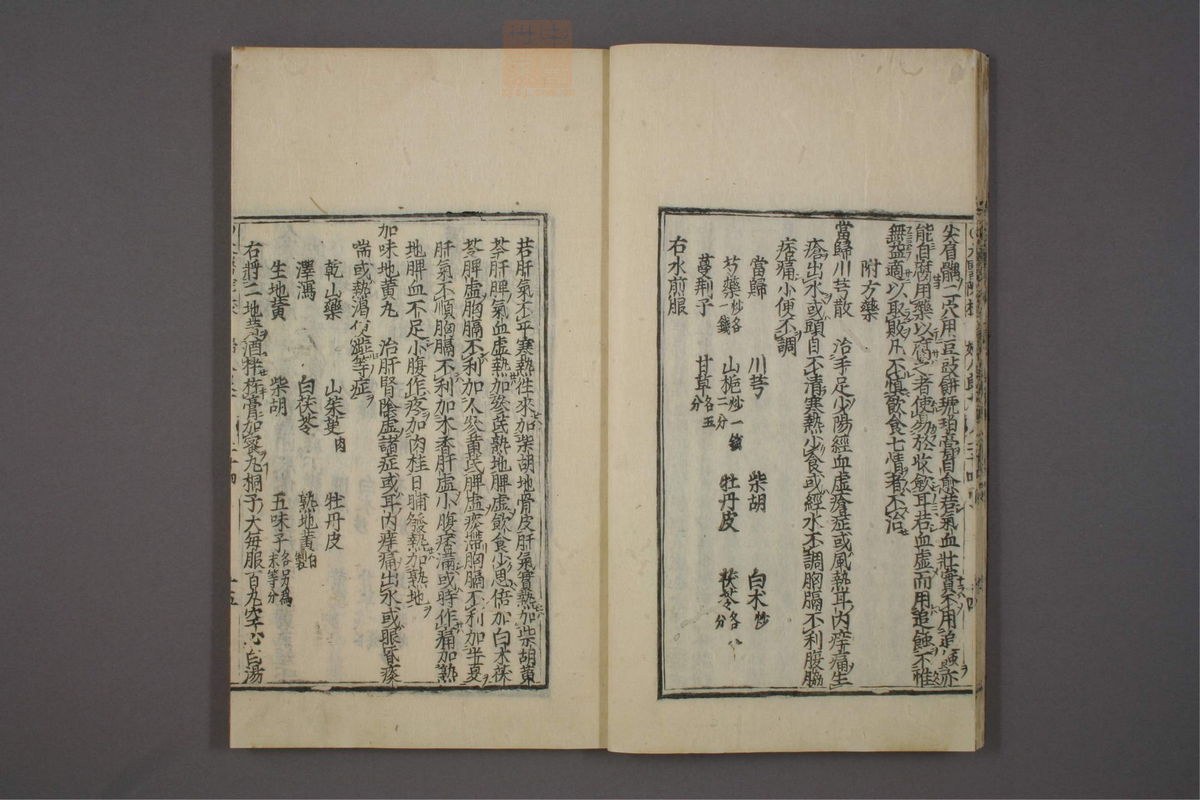 尖肩髃二穴用豆豉餅琥珀膏自愈若氣血壯實不用追蝕亦
能自腐用藥以腐之者便易於收斂耳若血虛而用追蝕不惟
無益適以取敗凡不慎飲食七情者不治
附方藥
當歸川芎散 治手足少陽經血虛瘡症或風熱耳內痒痛生
瘡出水或頭目不清寒熱少食或經水不調胸膈不利腹脇
痞痛小便不調
當歸 川芎 柴胡 白朮炒
芍藥炒各一錢 山梔炒一錢二分 牡丹皮 茯苓各八分
蔓荆子 甘草各五分
右水煎服
若肝氣不平寒熱徃來加柴胡地骨皮肝氣實熱加柴胡黄
芩肝脾氣血虛熱加參芪熟地脾虛飲食少思倍加白朮茯
苓脾虛胸膈不利加人參黄芪脾虛痰滯胸膈不利加半夏
肝氣不順胸膈不利加木香肝虛小腹痞滿或時作痛加熟
地脾血不足小腹作疼加肉桂日晡發熱加熟地
加味地黄丸 治肝腎陰虛諸症或耳內痒痛出水或眼昏痰
喘或熱渴便澀等症
乾山藥 山茱萸肉 牡丹皮
澤瀉 白茯苓 熟地黄自製
生地黄 柴胡 五味子各另為末等分
右將二地黄酒拌杵膏加蜜丸桐子大每服百丸空心白湯